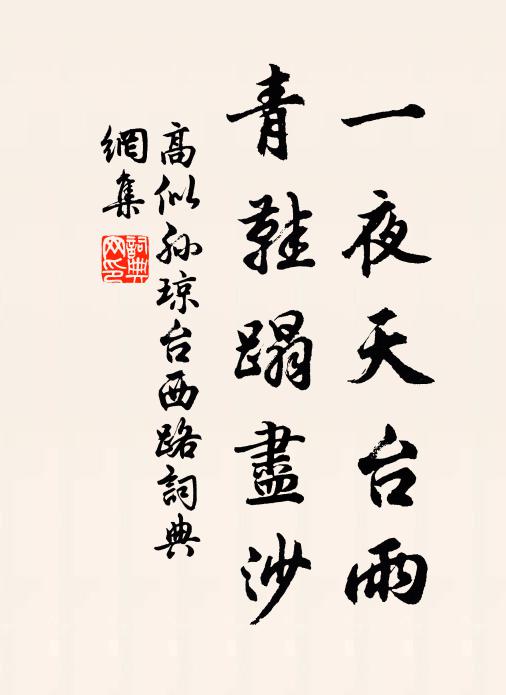 一夜天台雨
青鞋蹋盡沙
高似孙琼台西路詞典
網集
詞典
网印